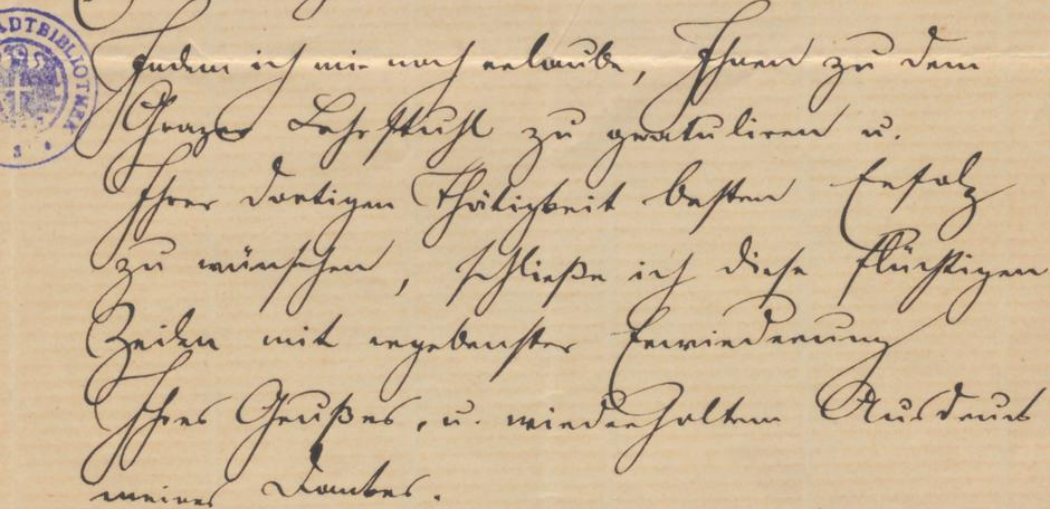 STADTBIBLIOTHEK
Indem ich mir noch erlaube, Ihnen zu dem
Grazer Lehrstuhl zu gratuliren u.
Ihrer dortigen Thätigkeit besten Erfolg
zu wünschen, schließe ich diese flüchtigen
Zeilen mit ergebenster Erwiederung
Ihres Grußes, u. wiederholtem Ausdruck
meines Dankes.